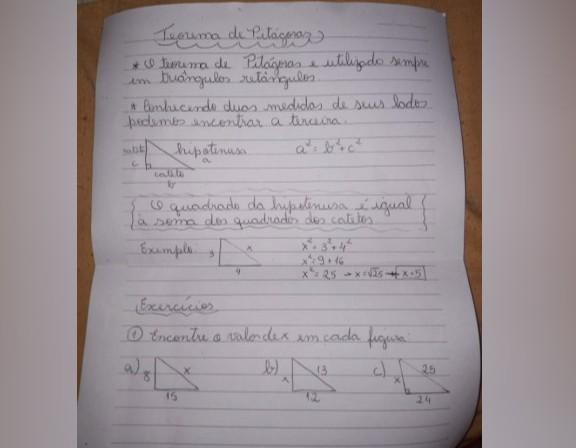 Teorema de Pitágoras
* O teorema de Pitágoras e utilizado sempre
em triângulos retângulos.
* Conhecendo duas medidas de seus lados
podemos encontrar a terceira.
catet.
c
hipotenusa
a
cateto
b
a² = b² + c²
{ O quadrado da hipotenusa é igual
à soma dos quadrados dos catetos. }
Exemplo
3
x
4
x² = 3² + 4²
x² = 9 + 16
x² = 25 → x = √25 → x = 5
Exercícios
① Encontre o valor de x em cada figura:
a) 8
x
15
b) x
13
12
c) x
25
24